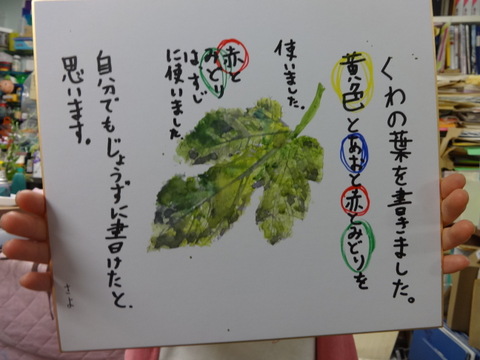 くわの葉を書きました。
黄色とあおと赤とみどりを
使いました。
赤と
みどり
はすじ
に使いました
自分でもじょうずに書けたと、
思います。
きよ